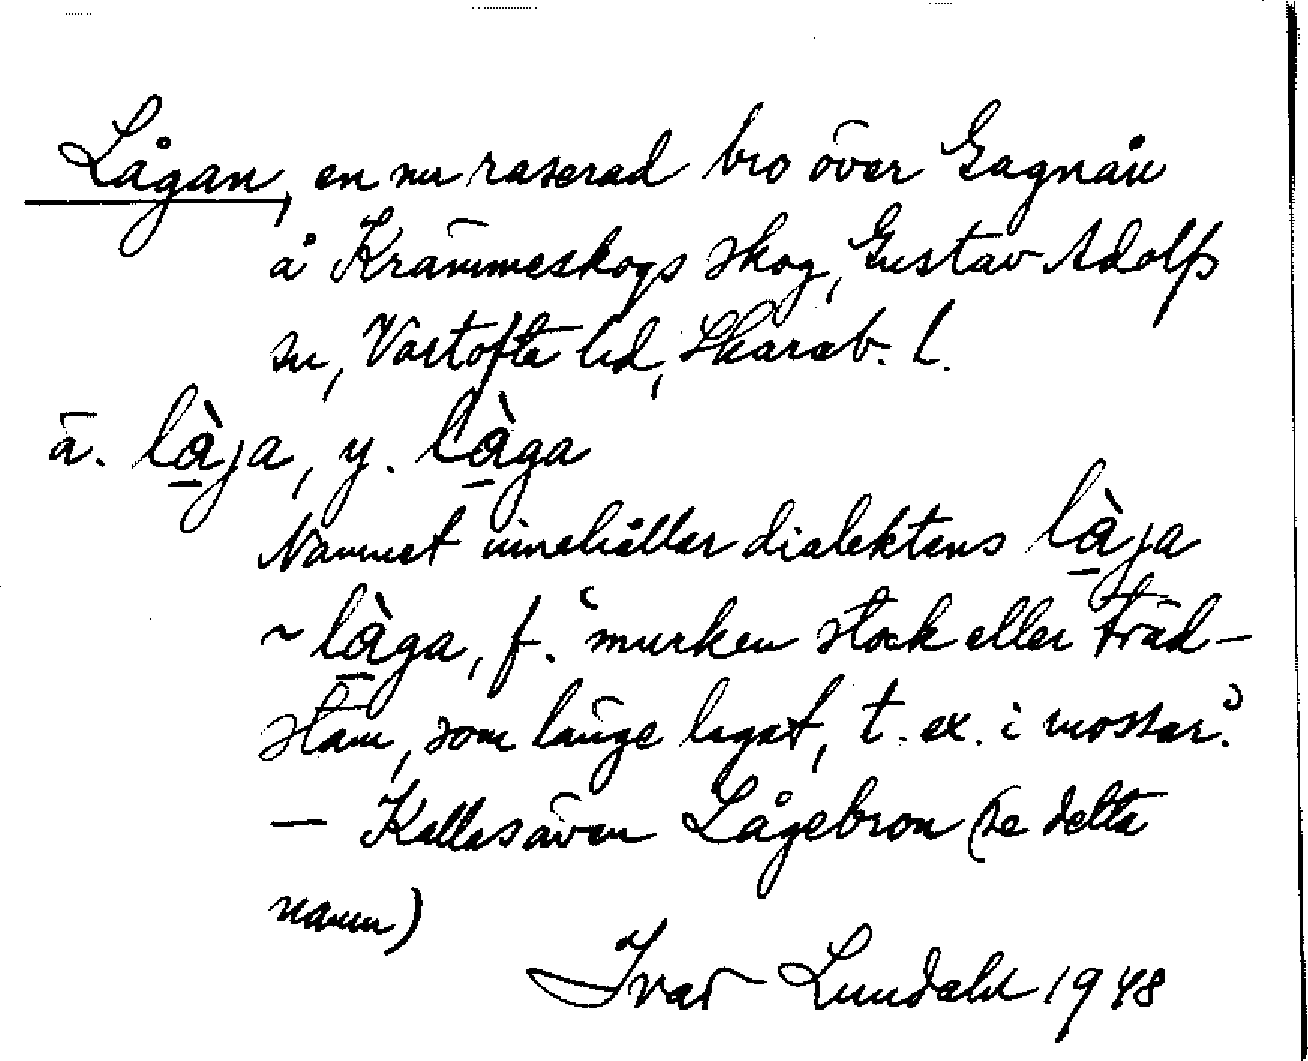 Lågan, en nu raserad bro över Gagnån
å Krämmeskogs skog, Gustav Adolfs
sn, Vartofta hd, Skarab. l.
ä. låja, y. låga
Namnet innehåller dialektens låja
~ låga, f. ‘murken stock eller träd-
stam, som länge legat, t. ex. i mossar.’
— Kallas även Lågebron (se detta
namn)
Ivar Lundahl 1948